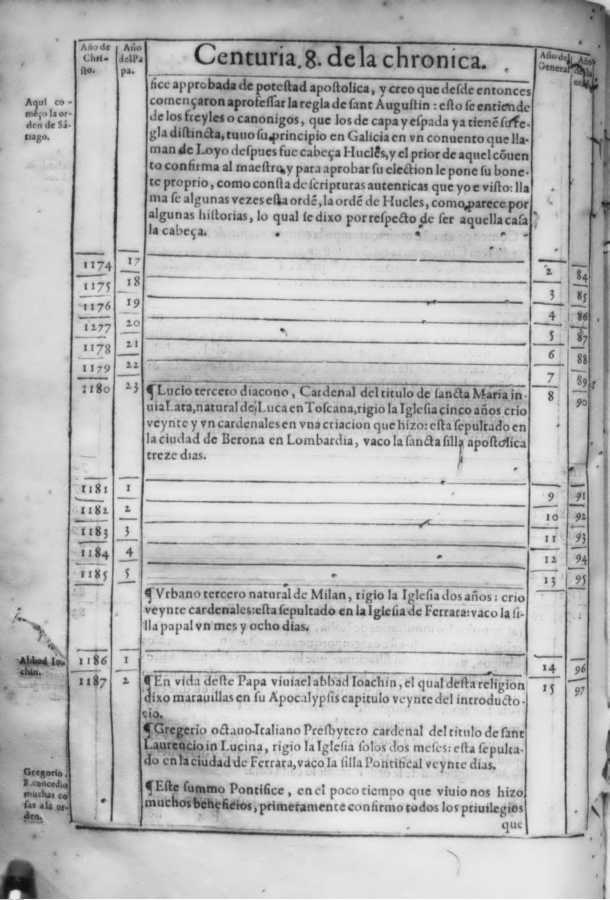 Año de Chri- sto.
Año del Pa pa.
Centuria. 8. de la chronica.
Año del General
Año
Aqui co-
meço la or-
den de Sã-
tiago.
fice approbada de potestad apostolica, y creo que desde entonces
començaron aprofessar la regla de sant Augustin : esto se entiende
de los freyles o canonigos, que los de capa y espada ya tienē su re-
gla distincta, tuuo su principio en Galicia en vn conuento que lla-
man de Loyo despues fue cabeça Huclés, y el prior de aquel cōuen
to confirma al maestro, y para aprobar su election le pone su bone-
te proprio, como consta de scripturas autenticas que yo e visto: lla
ma se algunas vezes esta ordē, la ordē de Hucles, como parece por
algunas historias, lo qual se dixo por respecto de ser aquella casa
la cabeça.
1174 17 2 84
1175 18 3 85
1176 19 4 86
1277 20 5 87
1178 21 6 88
1179 22 7 89
1180 23 8 90
¶ Lucio tercero diacono, Cardenal del titulo de sancta Maria in-
uia Lata, natural de Luca en Toscana, rigio la Iglesia cinco años crio
veynte y vn cardenales en vna criacion que hizo: esta sepultado en
la ciudad de Berona en Lombardia, vaco la sancta silla apostolica
treze dias.
1181 1 9 91
1182 2 10 92
1183 3 11 93
1184 4 12 94
1185 5 13 95
¶ Vrbano tercero natural de Milan, rigio la Iglesia dos años: crio
veynte cardenales: esta sepultado en la Iglesia de Ferrara: vaco la si-
lla papal vn mes y ocho dias.
Abbad Ioa-
chin.
1186 1 14 96
1187 2 15 97
¶ En vida deste Papa viuia el abbad Ioachin, el qual desta religion
dixo marauillas en su Apocalypsis capitulo veynte del introducto-
rio.
¶ Gregerio octauo Italiano Presbytero cardenal del titulo de sant
Laurencio in Lucina, rigio la Iglesia solos dos meses: esta sepulta-
do en la ciudad de Ferrara, vaco la silla Pontifical veynte dias.
Gregorio.
8. concedio
muchas co
sas a la or-
den.
¶ Este summo Pontifice, en el poco tiempo que viuio nos hizo
muchos beneficios, primeramente confirmo todos los priuilegios
que